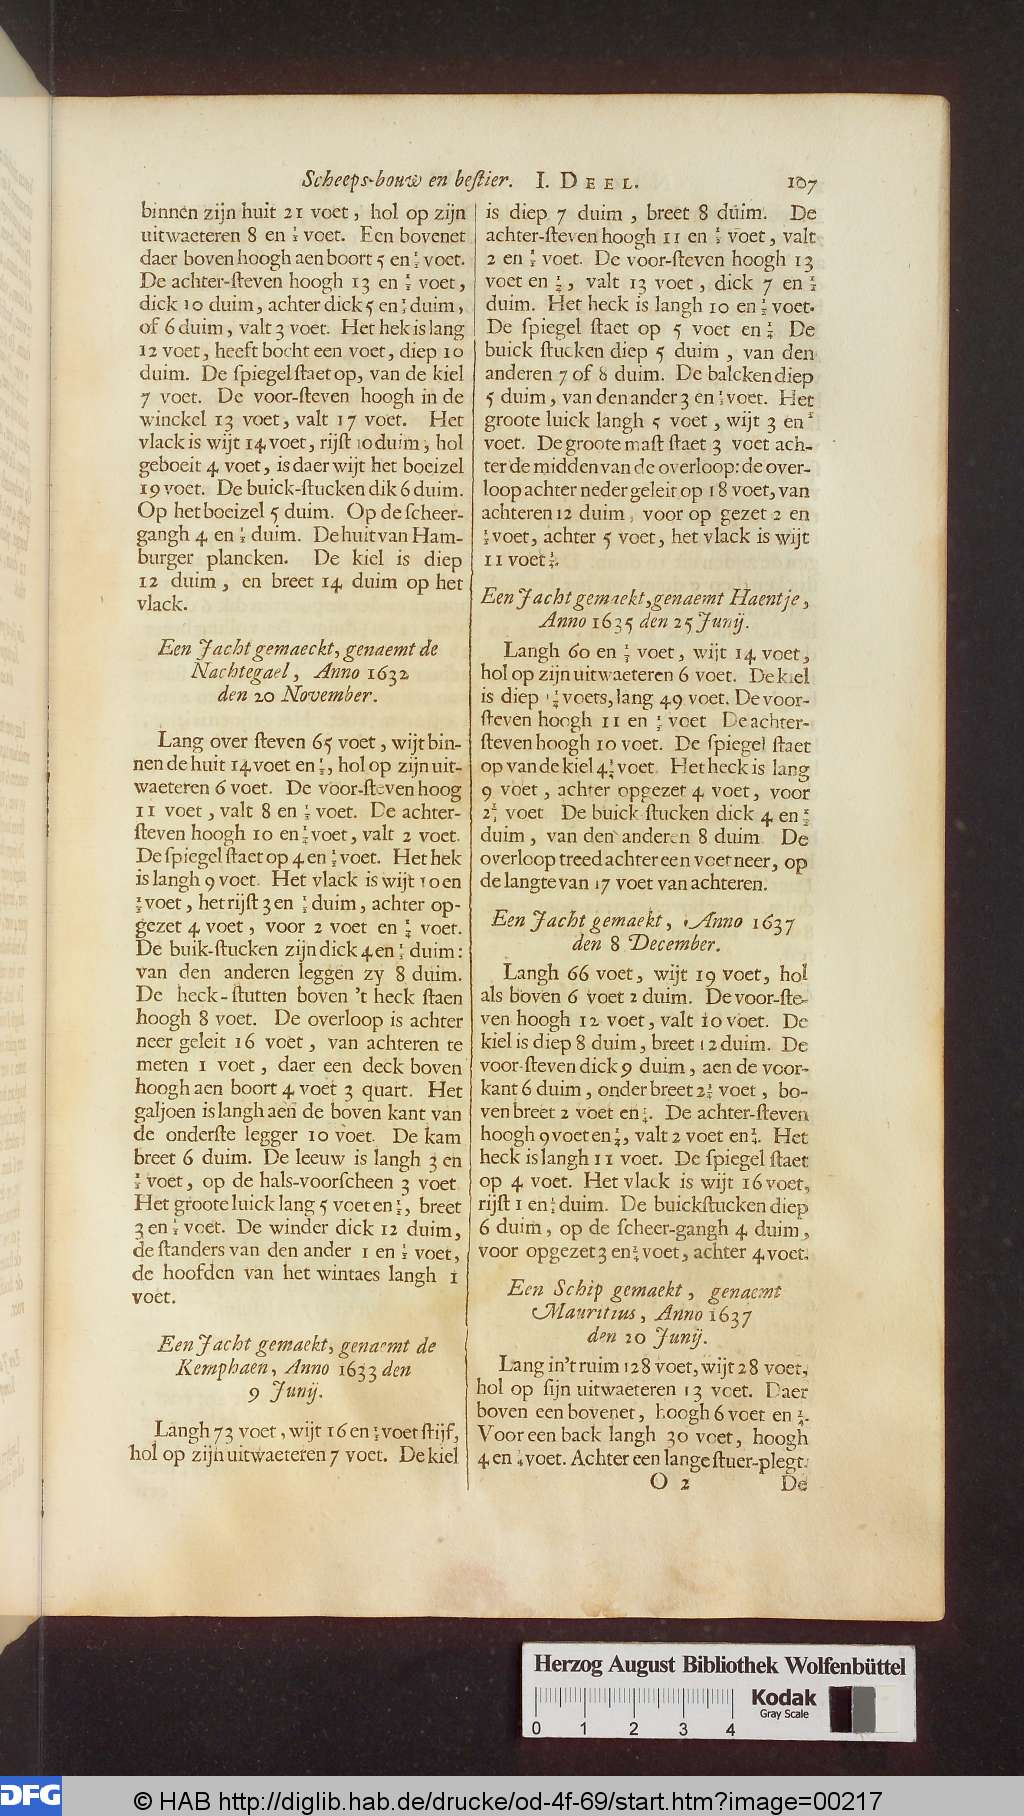 Scheeps-bouw en bestier. I. DEEL. 107
binnen zijn huit 21 voet, hol op zijn
uitwaeteren 8 en ½ voet. Een bovenet
daer boven hoogh aen boort 5 en ½ voet.
De achter-steven hoogh 13 en ½ voet,
dick 10 duim, achter dick 5 en ½ duim,
of 6 duim, valt 3 voet. Het hek is lang
12 voet, heeft bocht een voet, diep 10
duim. De spiegel staet op, van de kiel
7 voet. De voor-steven hoogh in de
winckel 13 voet, valt 17 voet. Het
vlack is wijt 14 voet, rijst 10 duim, hol
geboeit 4 voet, is daer wijt het boeizel
19 voet. De buick-stucken dik 6 duim.
Op het boeizel 5 duim. Op de scheer-
gangh 4 en ½ duim. De huit van Ham-
burger plancken. De kiel is diep
12 duim, en breet 14 duim op het
vlack.
Een Jacht gemaeckt, genaemt de
Nachtegael, Anno 1632
den 20 November.
Lang over steven 65 voet, wijt bin-
nen de huit 14 voet en ½, hol op zijn uit-
waeteren 6 voet. De voor-steven hoog
11 voet, valt 8 en ½ voet. De achter-
steven hoogh 10 en ½ voet, valt 2 voet.
De spiegel staet op 4 en ½ voet. Het hek
is langh 9 voet. Het vlack is wijt 10 en
½ voet, het rijst 3 en ½ duim, achter op-
gezet 4 voet, voor 2 voet en ¼ voet.
De buik-stucken zijn dick 4 en ½ duim:
van den anderen leggen zy 8 duim.
De heck-stutten boven 't heck staen
hoogh 8 voet. De overloop is achter
neer geleit 16 voet, van achteren te
meten 1 voet, daer een deck boven
hoogh aen boort 4 voet 3 quart. Het
galjoen is langh aen de boven kant van
de onderste legger 10 voet. De kam
breet 6 duim. De leeuw is langh 3 en
½ voet, op de hals-voorscheen 3 voet
Het groote luick lang 5 voet en ½, breet
3 en ½ voet. De winder dick 12 duim,
de standers van den ander 1 en ½ voet,
de hoofden van het wintaes langh 1
voet.
Een Jacht gemaekt, genaemt de
Kemphaen, Anno 1633 den
9 Junij.
Langh 73 voet, wijt 16 en ½ voet stijf,
hol op zijn uitwaeteren 7 voet. De kiel
is diep 7 duim, breet 8 duim. De
achter-steven hoogh 11 en ½ voet, valt
2 en ½ voet. De voor-steven hoogh 13
voet en ½, valt 13 voet, dick 7 en ½
duim. Het heck is langh 10 en ½ voet.
De spiegel staet op 5 voet en ¼ De
buick stucken diep 5 duim, van den
anderen 7 of 8 duim. De balcken diep
5 duim, van den ander 3 en ½ voet. Het
groote luick langh 5 voet, wijt 3 en
voet. De groote mast staet 3 voet ach-
ter de midden van de overloop: de over-
loop achter neder geleit op 18 voet, van
achteren 12 duim, voor op gezet 2 en
½ voet, achter 5 voet, het vlack is wijt
11 voet ½.
Een Jacht gemaekt, genaemt Haentje,
Anno 1635 den 25 Junij.
Langh 60 en ½ voet, wijt 14 voet,
hol op zijn uitwaeteren 6 voet. De kiel
is diep 1¼ voets, lang 49 voet. De voor-
steven hoogh 11 en ½ voet De achter-
steven hoogh 10 voet. De spiegel staet
op van de kiel 4¼ voet. Het heck is lang
9 voet, achter opgezet 4 voet, voor
2½ voet De buick stucken dick 4 en ½
duim, van den anderen 8 duim De
overloop treed achter een voet neer, op
de langte van 17 voet van achteren.
Een Jacht gemaekt, Anno 1637
den 8 December.
Langh 66 voet, wijt 19 voet, hol
als boven 6 voet 2 duim. De voor-ste-
ven hoogh 12 voet, valt 10 voet. De
kiel is diep 8 duim, breet 12 duim. De
voor-steven dick 9 duim, aen de voor-
kant 6 duim, onder breet 2¼ voet, bo-
ven breet 2 voet en ¼. De achter-steven
hoogh 9 voet en ¼, valt 2 voet en ¼. Het
heck is langh 11 voet. De spiegel staet
op 4 voet. Het vlack is wijt 16 voet,
rijst 1 en ½ duim. De buickstucken diep
6 duim, op de scheer-gangh 4 duim,
voor opgezet 3 en ¼ voet, achter 4 voet.
Een Schip gemaekt, genaemt
Mauritius, Anno 1637
den 20 Junij.
Lang in't ruim 128 voet, wijt 28 voet,
hol op sijn uitwaeteren 13 voet. Daer
boven een bovenet, hoogh 6 voet en ¼.
Voor een back langh 30 voet, hoogh
4 en ¼ voet. Achter een lange stuer-plegt.
O 2 De
Herzog August Bibliothek Wolfenbüttel
Kodak
Gray Scale
0 1 2 3 4
DFG © HAB http://diglib.hab.de/drucke/od-4f-69/start.htm?image=00217